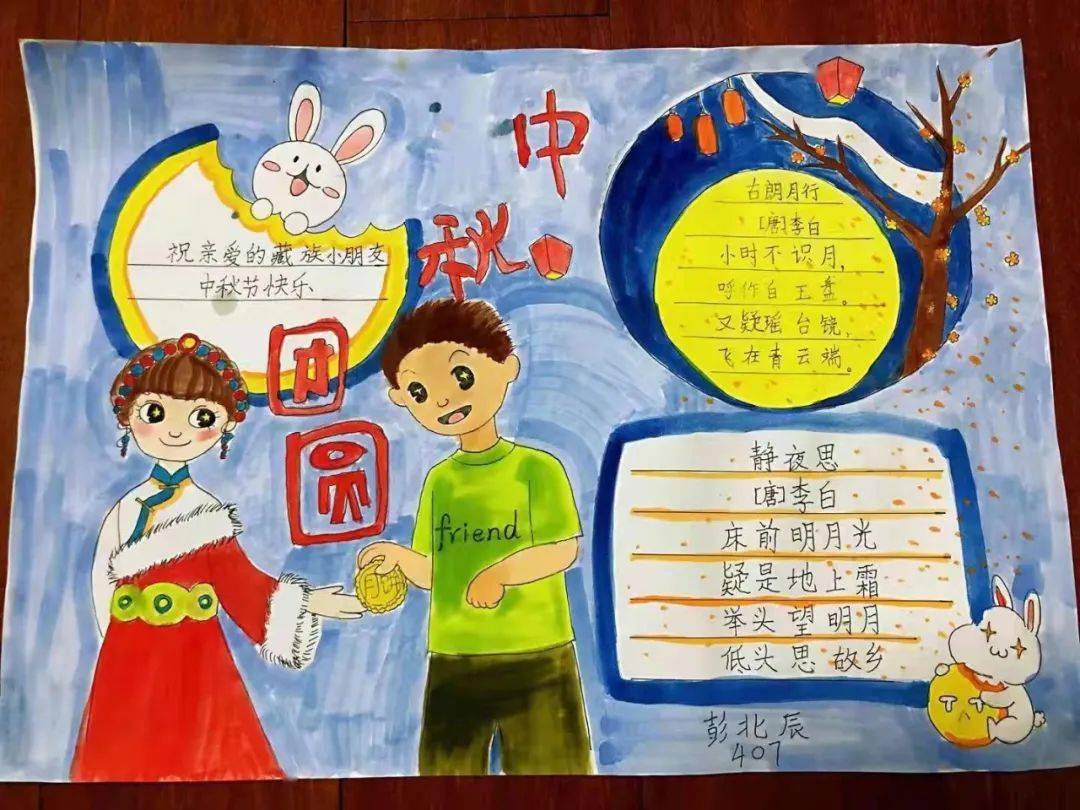 中秋
团圆
祝亲爱的藏族小朋友
中秋节快乐
friend
月饼
古朗月行
[唐]李白
小时不识月,
呼作白玉盘。
又疑瑶台镜,
飞在青云端。
静夜思
[唐]李白
床前明月光
疑是地上霜
举头望明月
低头思故乡
彭北辰
407